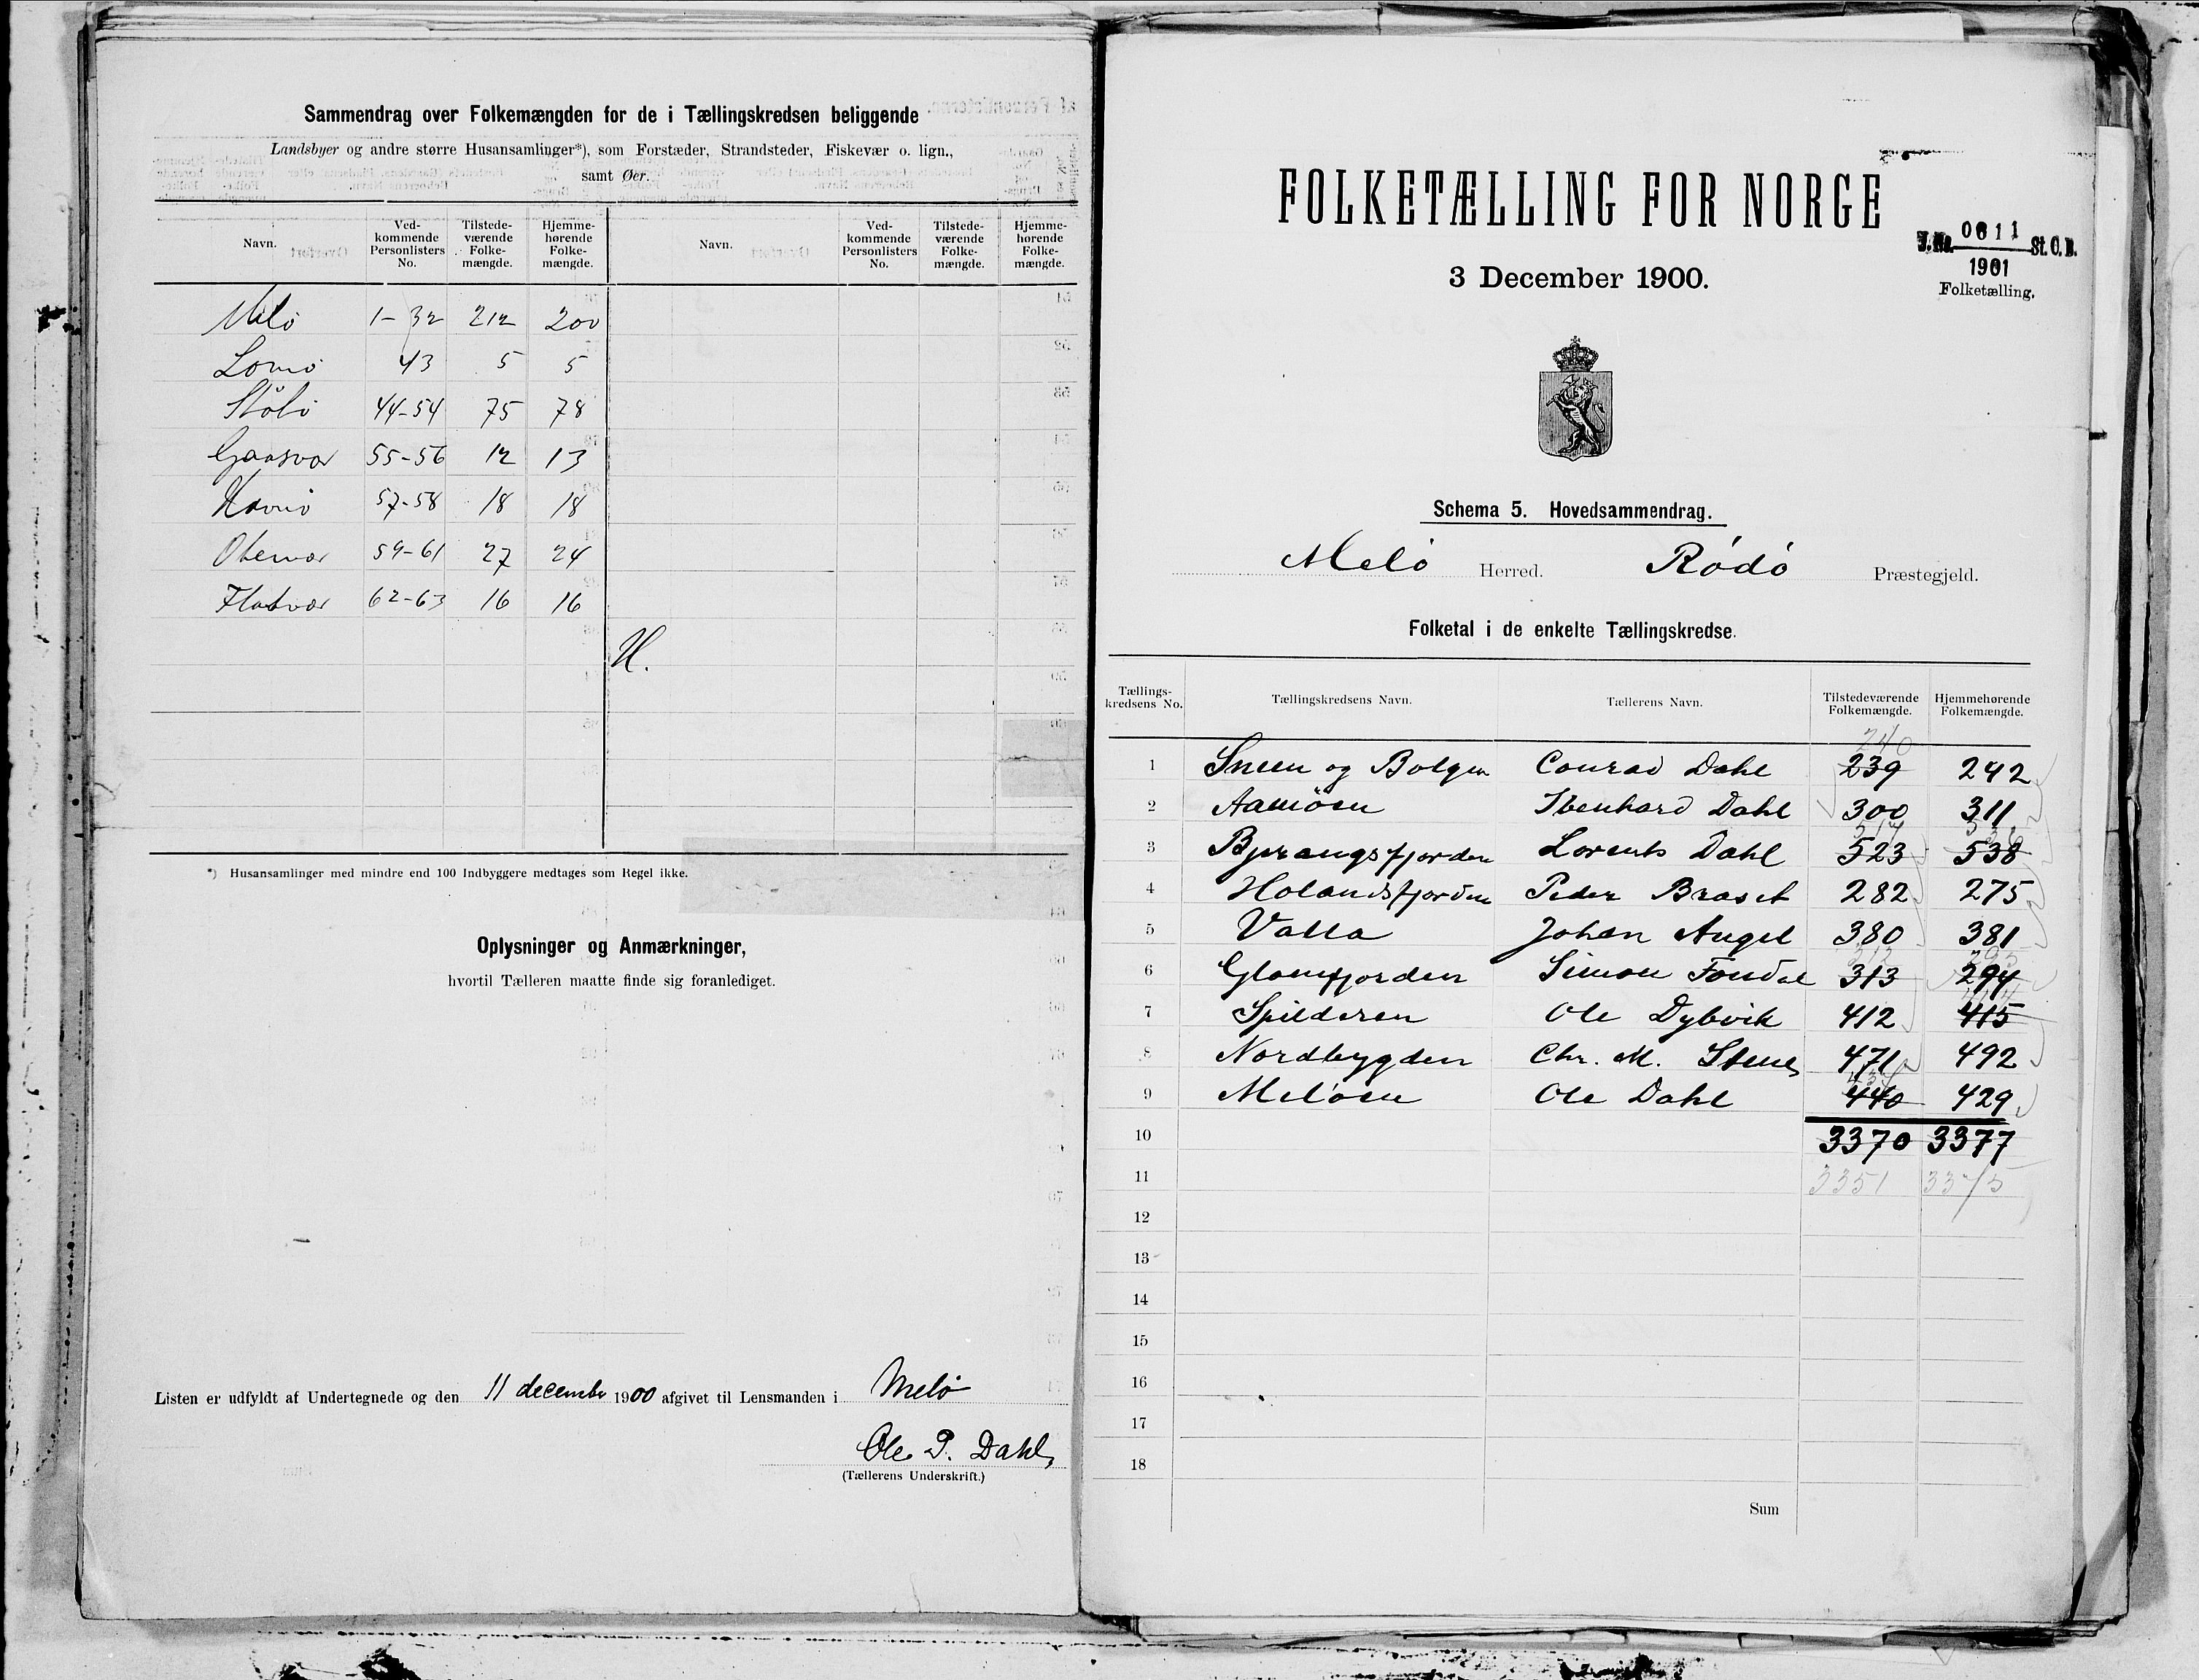 Sammendrag over Folkemængden for de i Tællingskredsen beliggende
Landsbyer og andre større Husansamlinger*), som Forstæder, Strandsteder, Fiskevær o. lign.,
samt Øer.
Navn. Ved-kommende Personlisters No. Tilstede-værende Folke-mængde. Hjemme-hørende Folke-mængde. Navn. Ved-kommende Personlisters No. Tilstede-værende Folke-mængde. Hjemme-hørende Folke-mængde.
Melö 1-32 212 200
43 5 5
Stölö 44-54 75 78
Gaasvær 55-56 12 13
57-58 18 18
59-61 27 24
Flatvær 62-63 16 16
H.
*) Husansamlinger med mindre end 100 Indbyggere medtages som Regel ikke.
Oplysninger og Anmærkninger,
hvortil Tælleren maatte finde sig foranlediget.
Listen er udfyldt af Undertegnede og den 11 december 1900 afgivet til Lensmanden i Melö
Ole P. Dahl,
(Tællerens Underskrift.)
FOLKETÆLLING FOR NORGE
3 December 1900.
J. No. 0611 St. C. B.
1901
Folketælling.
Schema 5. Hovedsammendrag.
Melö Herred. Rödö Præstegjeld.
Folketal i de enkelte Tællingskredse.
Tællings-kredsens No. Tællingskredsens Navn. Tællerens Navn. Tilstedeværende Folkemængde. Hjemmehørende Folkemængde.
240
1 Sneen og Bolgen Conrad Dahl 239 242
2 Aamöen Ibenhard Dahl 300 311
3 Bjerangsfjorden Lorents Dahl 523 538
4 Holandsfjorden Peder Braset 282 275
5 Valla Johan Angel 380 381
312 295
6 Glomfjorden Simon Fondal 313 294
414
7 Spilderen Ole Dybvik 412 415
8 Nordbygden Chr. M. Stene 471 492
9 Melöen Ole Dahl 440 429
10 3370 3377
11 3351 3375
12
13
14
15
16
17
18
Sum